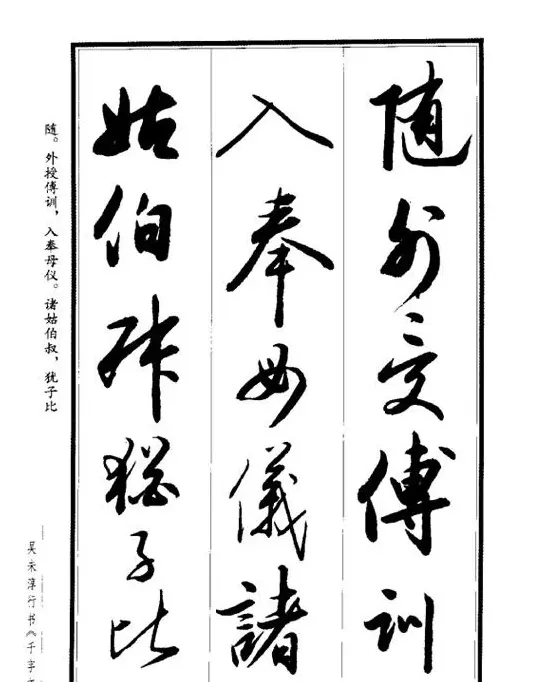 随外受傅訓
入奉母儀諸
姑伯叔猶子比
随。外授傅训，入奉母仪。诸姑伯叔，犹子比
吴未淳行书《千字